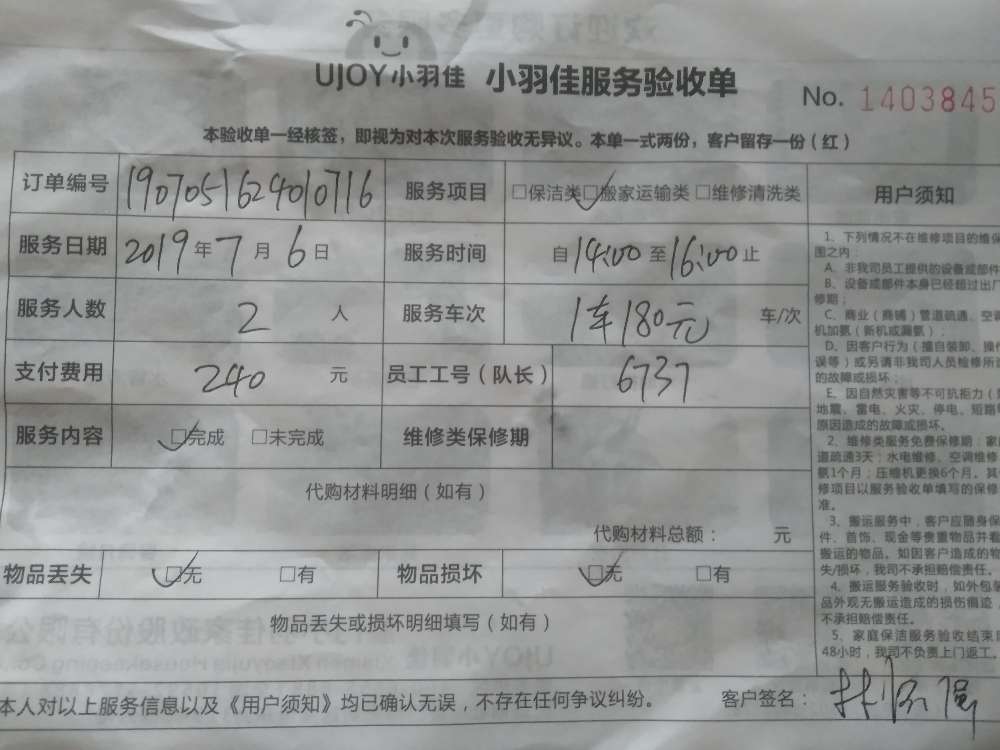 UJOY小羽佳 小羽佳服务验收单
No. 1403845
本验收单一经核签，即视为对本次服务验收无异议。本单一式两份，客户留存一份（红）
订单编号 1907051624010716 服务项目 □保洁类 □搬家运输类 □维修清洗类 用户须知
服务日期 2019年7月6日 服务时间 自14:00至16:00止
服务人数 2 人 服务车次 1车180元 车/次
支付费用 240 元 员工工号（队长） 6737
服务内容 □完成 □未完成 维修类保修期
代购材料明细（如有）
代购材料总额： 元
物品丢失 □无 □有 物品损坏 □无 □有
物品丢失或损坏明细填写（如有）
本人对以上服务信息以及《用户须知》均已确认无误，不存在任何争议纠纷。 客户签名：
1、下列情况不在维修项目的维保
围之内：
A、非我司员工提供的设备或部件
B、设备或部件本身已经超过出厂
修期；
C、商业（商铺）管道疏通、空调
机加氨（新机或漏氨）.
D、因客户行为（擅自装卸、操作
误等）或另请非我司人员检修所造
的故障或损坏；
E、因自然灾害等不可抗拒力（
地震、雷电、火灾、停电、短路
原因造成的故障或损坏。
2、维修类服务免费保修期：家庭
道疏通3天；水电维修、空调维修
氨1个月；压缩机更换6个月。其
修项目以服务验收单填写的保修
准。
3、搬运服务中，客户应随身保
件、首饰、现金等贵重物品并看
搬运的物品。如因客户造成的物
失/损坏，我司不承担赔偿责任。
4、搬运服务验收时，如外包装
品外观无搬运造成的损伤痕迹，
不承担赔偿责任。
5、家庭保洁服务验收结束后
48小时，我司不负责上门返工。